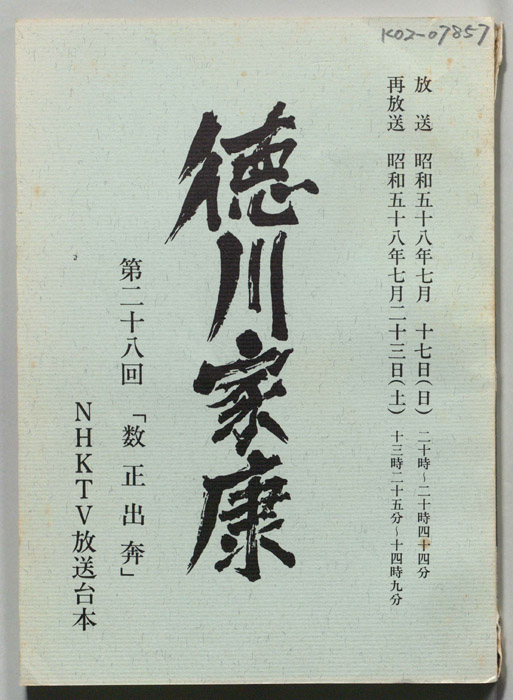 K02-07857
放　送　昭和五十八年七月　十七日(日)　二十時~二十時四十四分
再放送　昭和五十八年七月二十三日(土)　十三時二十五分~十四時九分
徳川家康
第二十八回　「数正出奔」
NHKTV放送台本